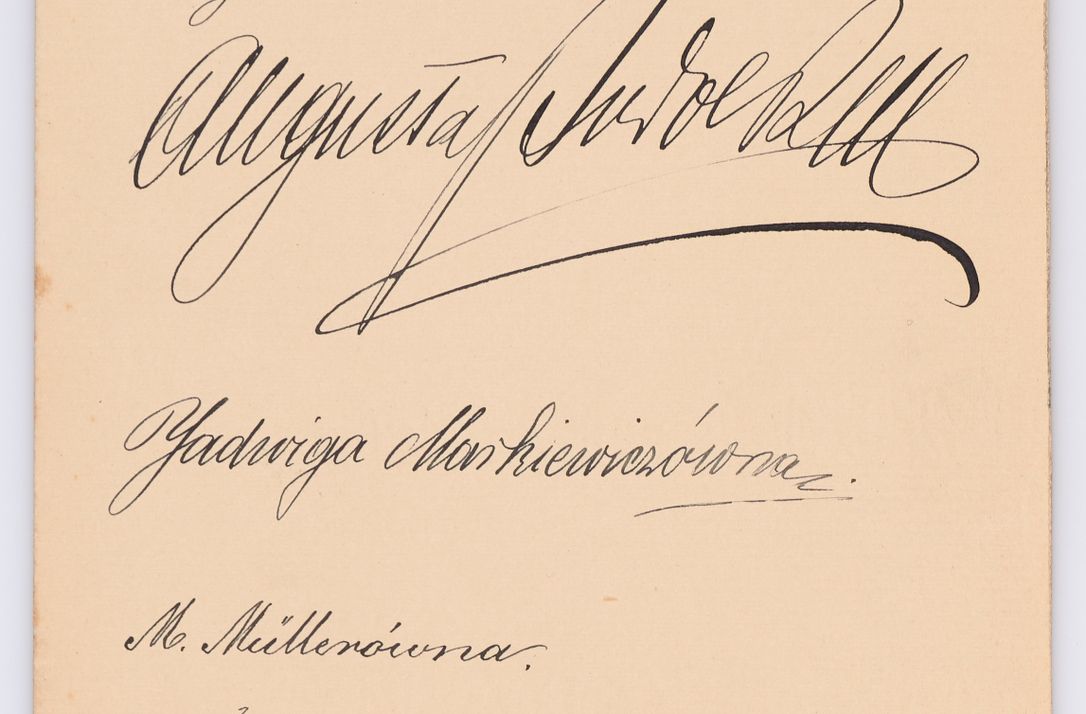 Augusta
Jadwiga Markiewiczówna.
M. Müllerówna.